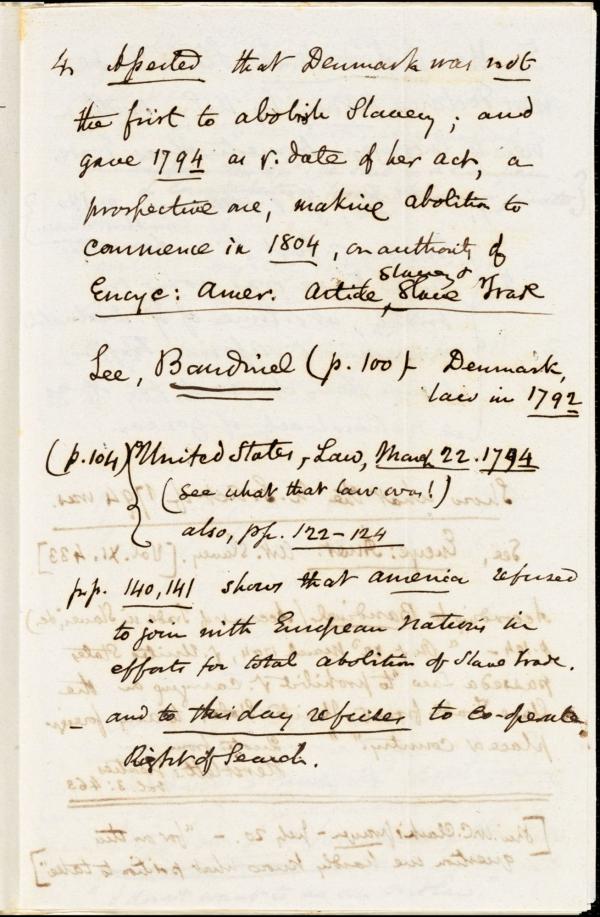 4. Asserted that Denmark was not
the first to abolish Slavery; and
gave 1794 as ye. date of her act, a
prospective one, making abolition to
commence in 1804, on authority of
Slavery &
Encyc: Amer. Article, Slave Trade
See, Bandinel (p. 100) - Denmark,
law in 1792
(p. 104) United States, - Law, March 22. 1794
(see what that law was!)
also, pp. 122-124
pp. 140, 141 shows that America refused
to join with European Nations in
efforts for total abolition of Slave Trade.
- and to this day refuses to co-operate
Right of Search.